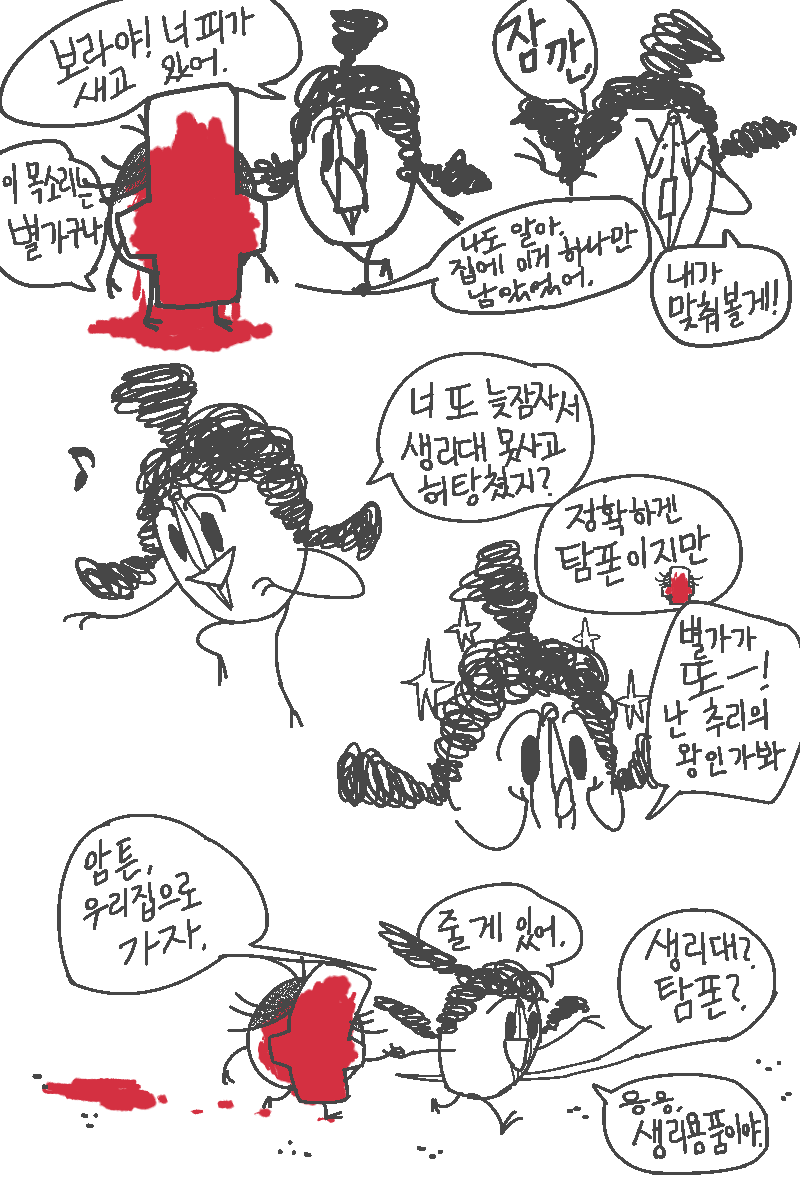 보라야! 너 피가
새고 있어.
이 목소리는
별가구나
나도 알아.
집에 이게 하나만
남았었어.
잠깐,
내가
맞춰볼게!
너 또 늦잠자서
생리대 못사고
허탕쳤지?
정확하겐
탐폰이지만
별가가
또ㅡ!
난 추리의
왕인가봐
암튼,
우리집으로
가자.
줄게 있어.
생리대?
탐폰?
응응,
생리용품이야.